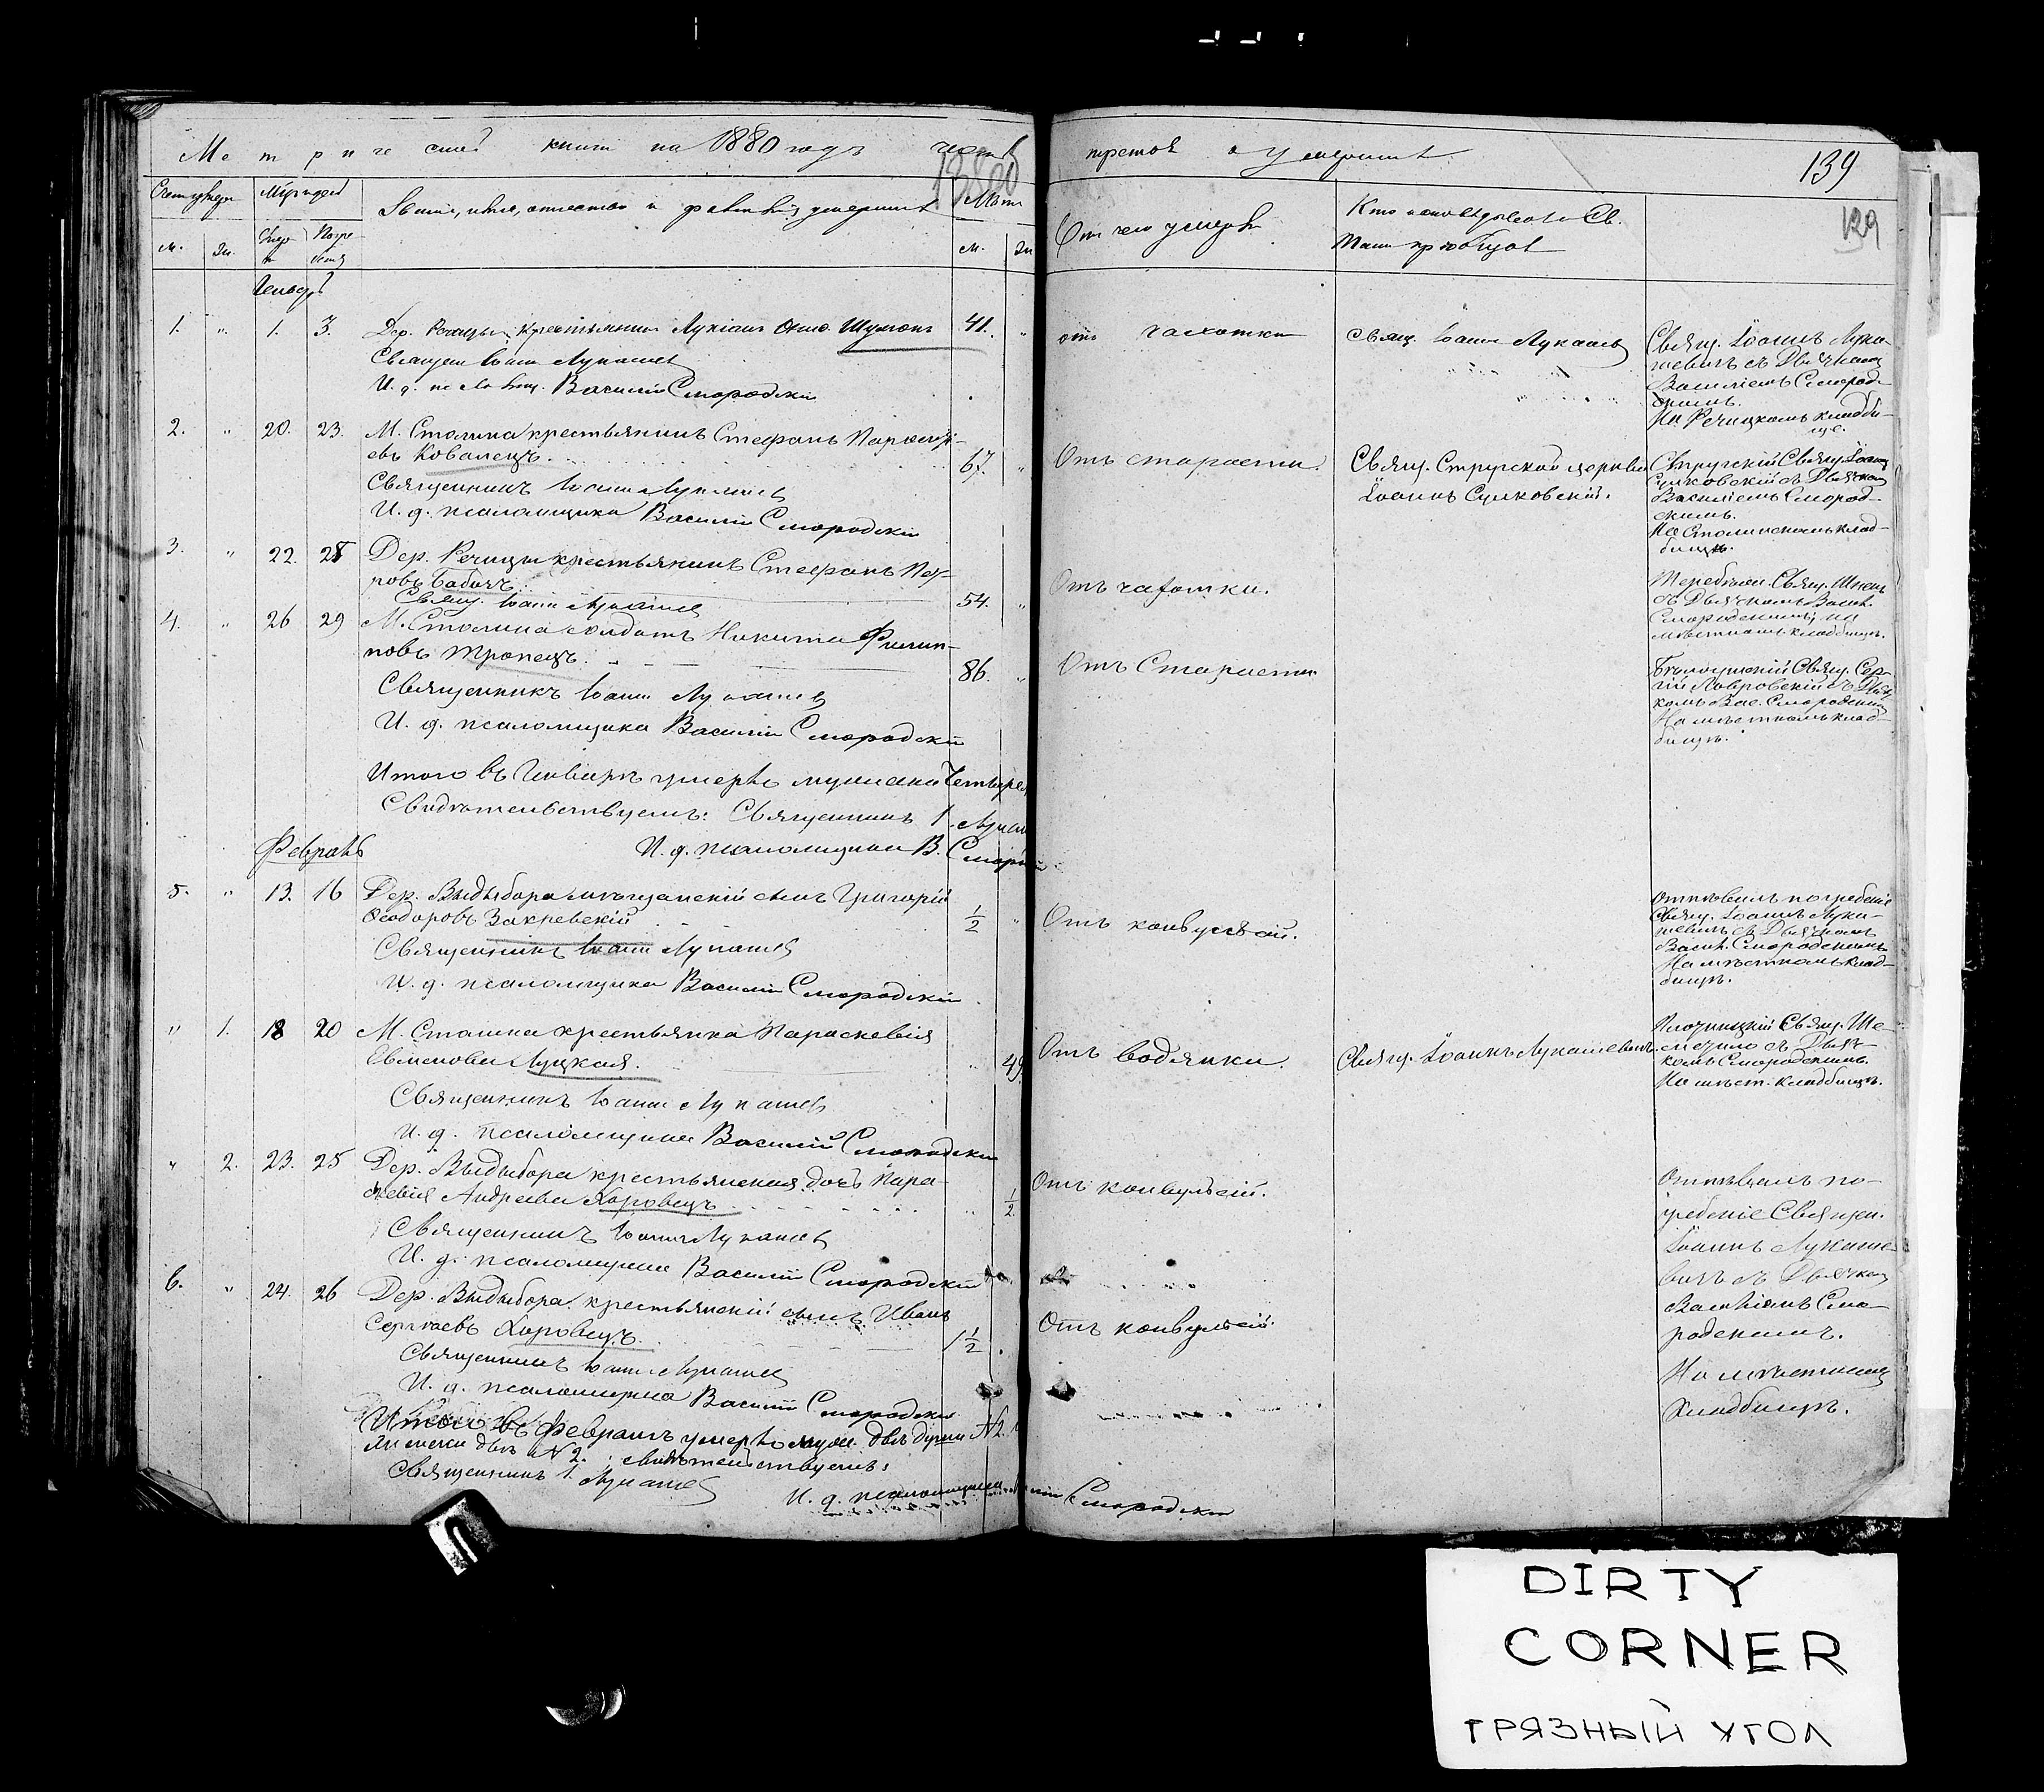 Метрической книги на 1880 годъ часть третья о умершихъ
139
129
Счетъ умерш.
Мѣсяцъ и день
Званіе, имя, отчество и фамилія умершихъ
Лѣта
Отъ чего умеръ
Кто исповѣдывалъ и Св.
Таин. пріобщалъ
м. ж.
м. ж.
Январь
1. " 1. 3. Дер. Речицы крестьянинъ Лукіанъ Шумакъ 41. "
Священ. Іоаннъ Лукашев
И. д. псаломщ. Василій Смородскій
отъ чахотки
Свящ. Іоаннъ Лукашев
Свящ. Іоаннъ Лука-
шевичъ съ Дьячкомъ
Василіемъ Смород-
скимъ.
На Речицкомъ кладби-
ще.
2. " 20. 23. М. Столина крестьянинъ Стефанъ
евъ Ковалецъ. 67. "
Священникъ Іоаннъ Лукашев
И. д. псаломщика Василій Смородскій
Отъ старости.
Свящ. Стружской церкви
Іоаннъ Сулковскій.
Стружскій Свящ. Іоаннъ
Сулковскій съ Дьячком
Василіемъ Смород-
скимъ.
На Столинскомъ клад-
бищѣ.
3. " 22. 28 Дер. Речицы крестьянинъ Стефанъ Пет-
ровъ Бабичъ. 54. "
Свящ. Іоаннъ Лукашев
Отъ чахотки.
Теребежов. Свящ.
съ Дьячкомъ Васил.
Смородскимъ, на
мѣстномъ кладбищѣ.
4. " 26 29 М. Столина солдатъ Никита Филип-
повъ Тропецъ. 86. "
Священникъ Іоаннъ Лукашев
И. д. псаломщика Василій Смородскій
Отъ Старости
Свящ. Сер-
гій Лавровскій съ Дьяч-
комъ Вас. Смородскимъ
На мѣстномъ клад-
бищѣ.
Итого въ Январѣ умерло мужескаго Четыре
Свидѣтельствуемъ: Священникъ І. Лукаш
И. д. псаломщика В. Смородскій
Февраль
5. " 13. 16 Дер. Выдыбора мѣщанскій сынъ Григорій
Ѳеодоровъ Закревскій 1/2 "
Священникъ Іоаннъ Лукашев
И. д. псаломщика Василій Смородскій
Отъ конвульсій.
Отпѣвалъ погребеніе
Свящ. Іоаннъ Лука-
шевичъ съ Дьячкомъ
Васил. Смородскимъ
На мѣстномъ клад-
бищѣ.
" 1. 18 20 М. Столина крестьянка Параскевія
Евменова Луцкая. " 49.
Священникъ Іоаннъ Лукашев
И. д. псаломщика Василій Смородскій
Отъ водянки.
Свящ. Іоаннъ Лукашевичъ.
Плотницкій Свящ. Ше-
метило съ Дьяч-
комъ Смородскимъ.
На мѣст. кладбищѣ.
" 2. 23. 25 Дер. Выдыбора крестьянская дочь Пара-
скевія Андреева Хоровецъ " 1/2
Священникъ Іоаннъ Лукашев
И. д. псаломщика Василій Смородскій
Отъ конвульсій.
Отпѣвалъ по-
гребеніе Священ.
Іоаннъ Лукаше-
вичъ съ Дьячком
Василіемъ Смо-
родскимъ.
На мѣстномъ
Кладбищѣ.
6. " 24. 26 Дер. Выдыбора крестьянскій сынъ Иванъ
Сергѣевъ Хоровецъ. 1 1/2
Священникъ Іоаннъ Лукашев
И. д. псаломщика Василій Смородскій
Отъ конвульсій.
Итого въ Февралѣ умерло муж. двѣ души №2.
женска двѣ №2. свидѣтельствуемъ:
Священникъ І. Лукашев
И. д. псаломщика Василій Смородскій
DIRTY
CORNER
ГРЯЗНЫЙ УГОЛ